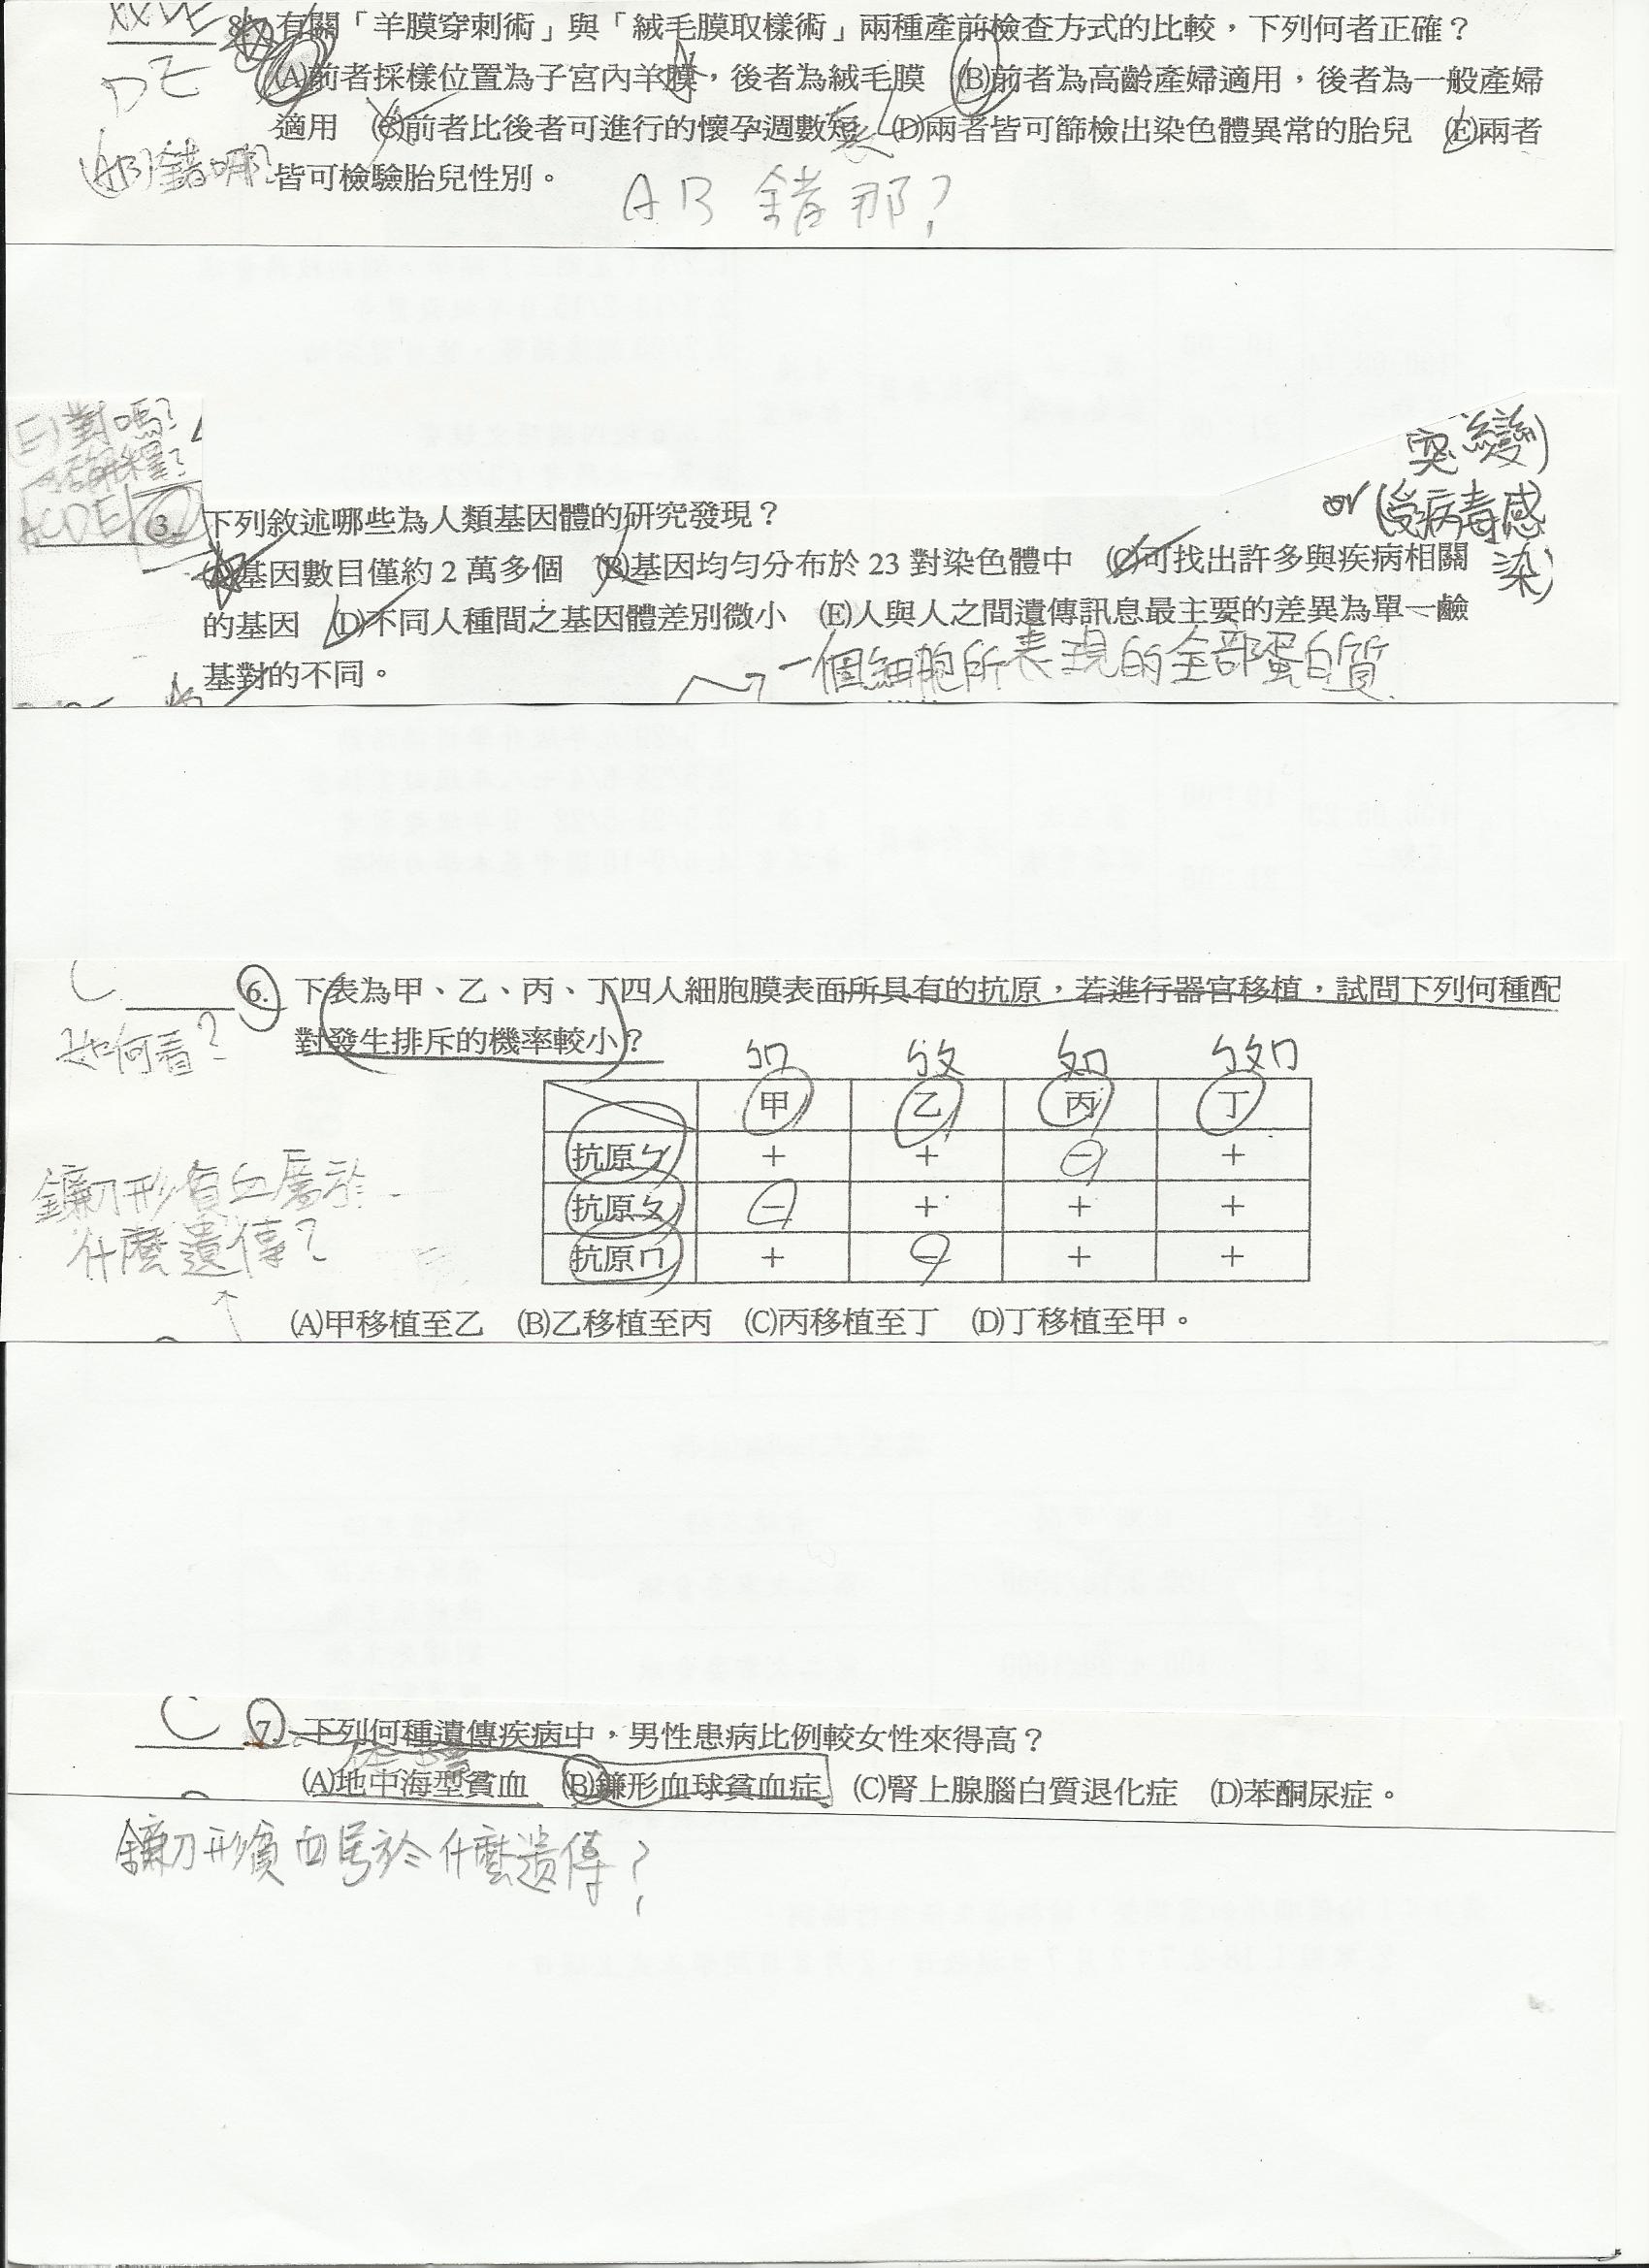 8. 有關「羊膜穿刺術」與「絨毛膜取樣術」兩種產前檢查方式的比較，下列何者正確？
DE
(A)前者採樣位置為子宮內羊膜，後者為絨毛膜　(B)前者為高齡產婦適用，後者為一般產婦
適用　(C)前者比後者可進行的懷孕週數短　(D)兩者皆可篩檢出染色體異常的胎兒　(E)兩者
長
皆可檢驗胎兒性別。
(AB)錯哪？
AB 錯那？
(E)對嗎？
請解釋？
突變)
or (受病毒感
染)
ACDE
3. 下列敘述哪些為人類基因體的研究發現？
(A)基因數目僅約 2 萬多個　(B)基因均勻分布於 23 對染色體中　(C)可找出許多與疾病相關
的基因　(D)不同人種間之基因體差別微小　(E)人與人之間遺傳訊息最主要的差異為單一鹼
基對的不同。
一個細胞所表現的全部蛋白質
C
6. 下表為甲、乙、丙、丁四人細胞膜表面所具有的抗原，若進行器官移植，試問下列何種配
對發生排斥的機率較小？
如何看？
ㄅㄇ　ㄅㄆ　ㄆㄇ　ㄅㄆㄇ
甲　乙　丙　丁
抗原ㄅ　+　+　－　+
抗原ㄆ　－　+　+　+
抗原ㄇ　+　－　+　+
鐮刀形貧血屬於
什麼遺傳？
(A)甲移植至乙　(B)乙移植至丙　(C)丙移植至丁　(D)丁移植至甲。
C
7. 下列何種遺傳疾病中，男性患病比例較女性來得高？
(A)地中海型貧血　(B)鐮形血球貧血症　(C)腎上腺腦白質退化症　(D)苯酮尿症。
鐮刀形貧血屬於什麼遺傳？